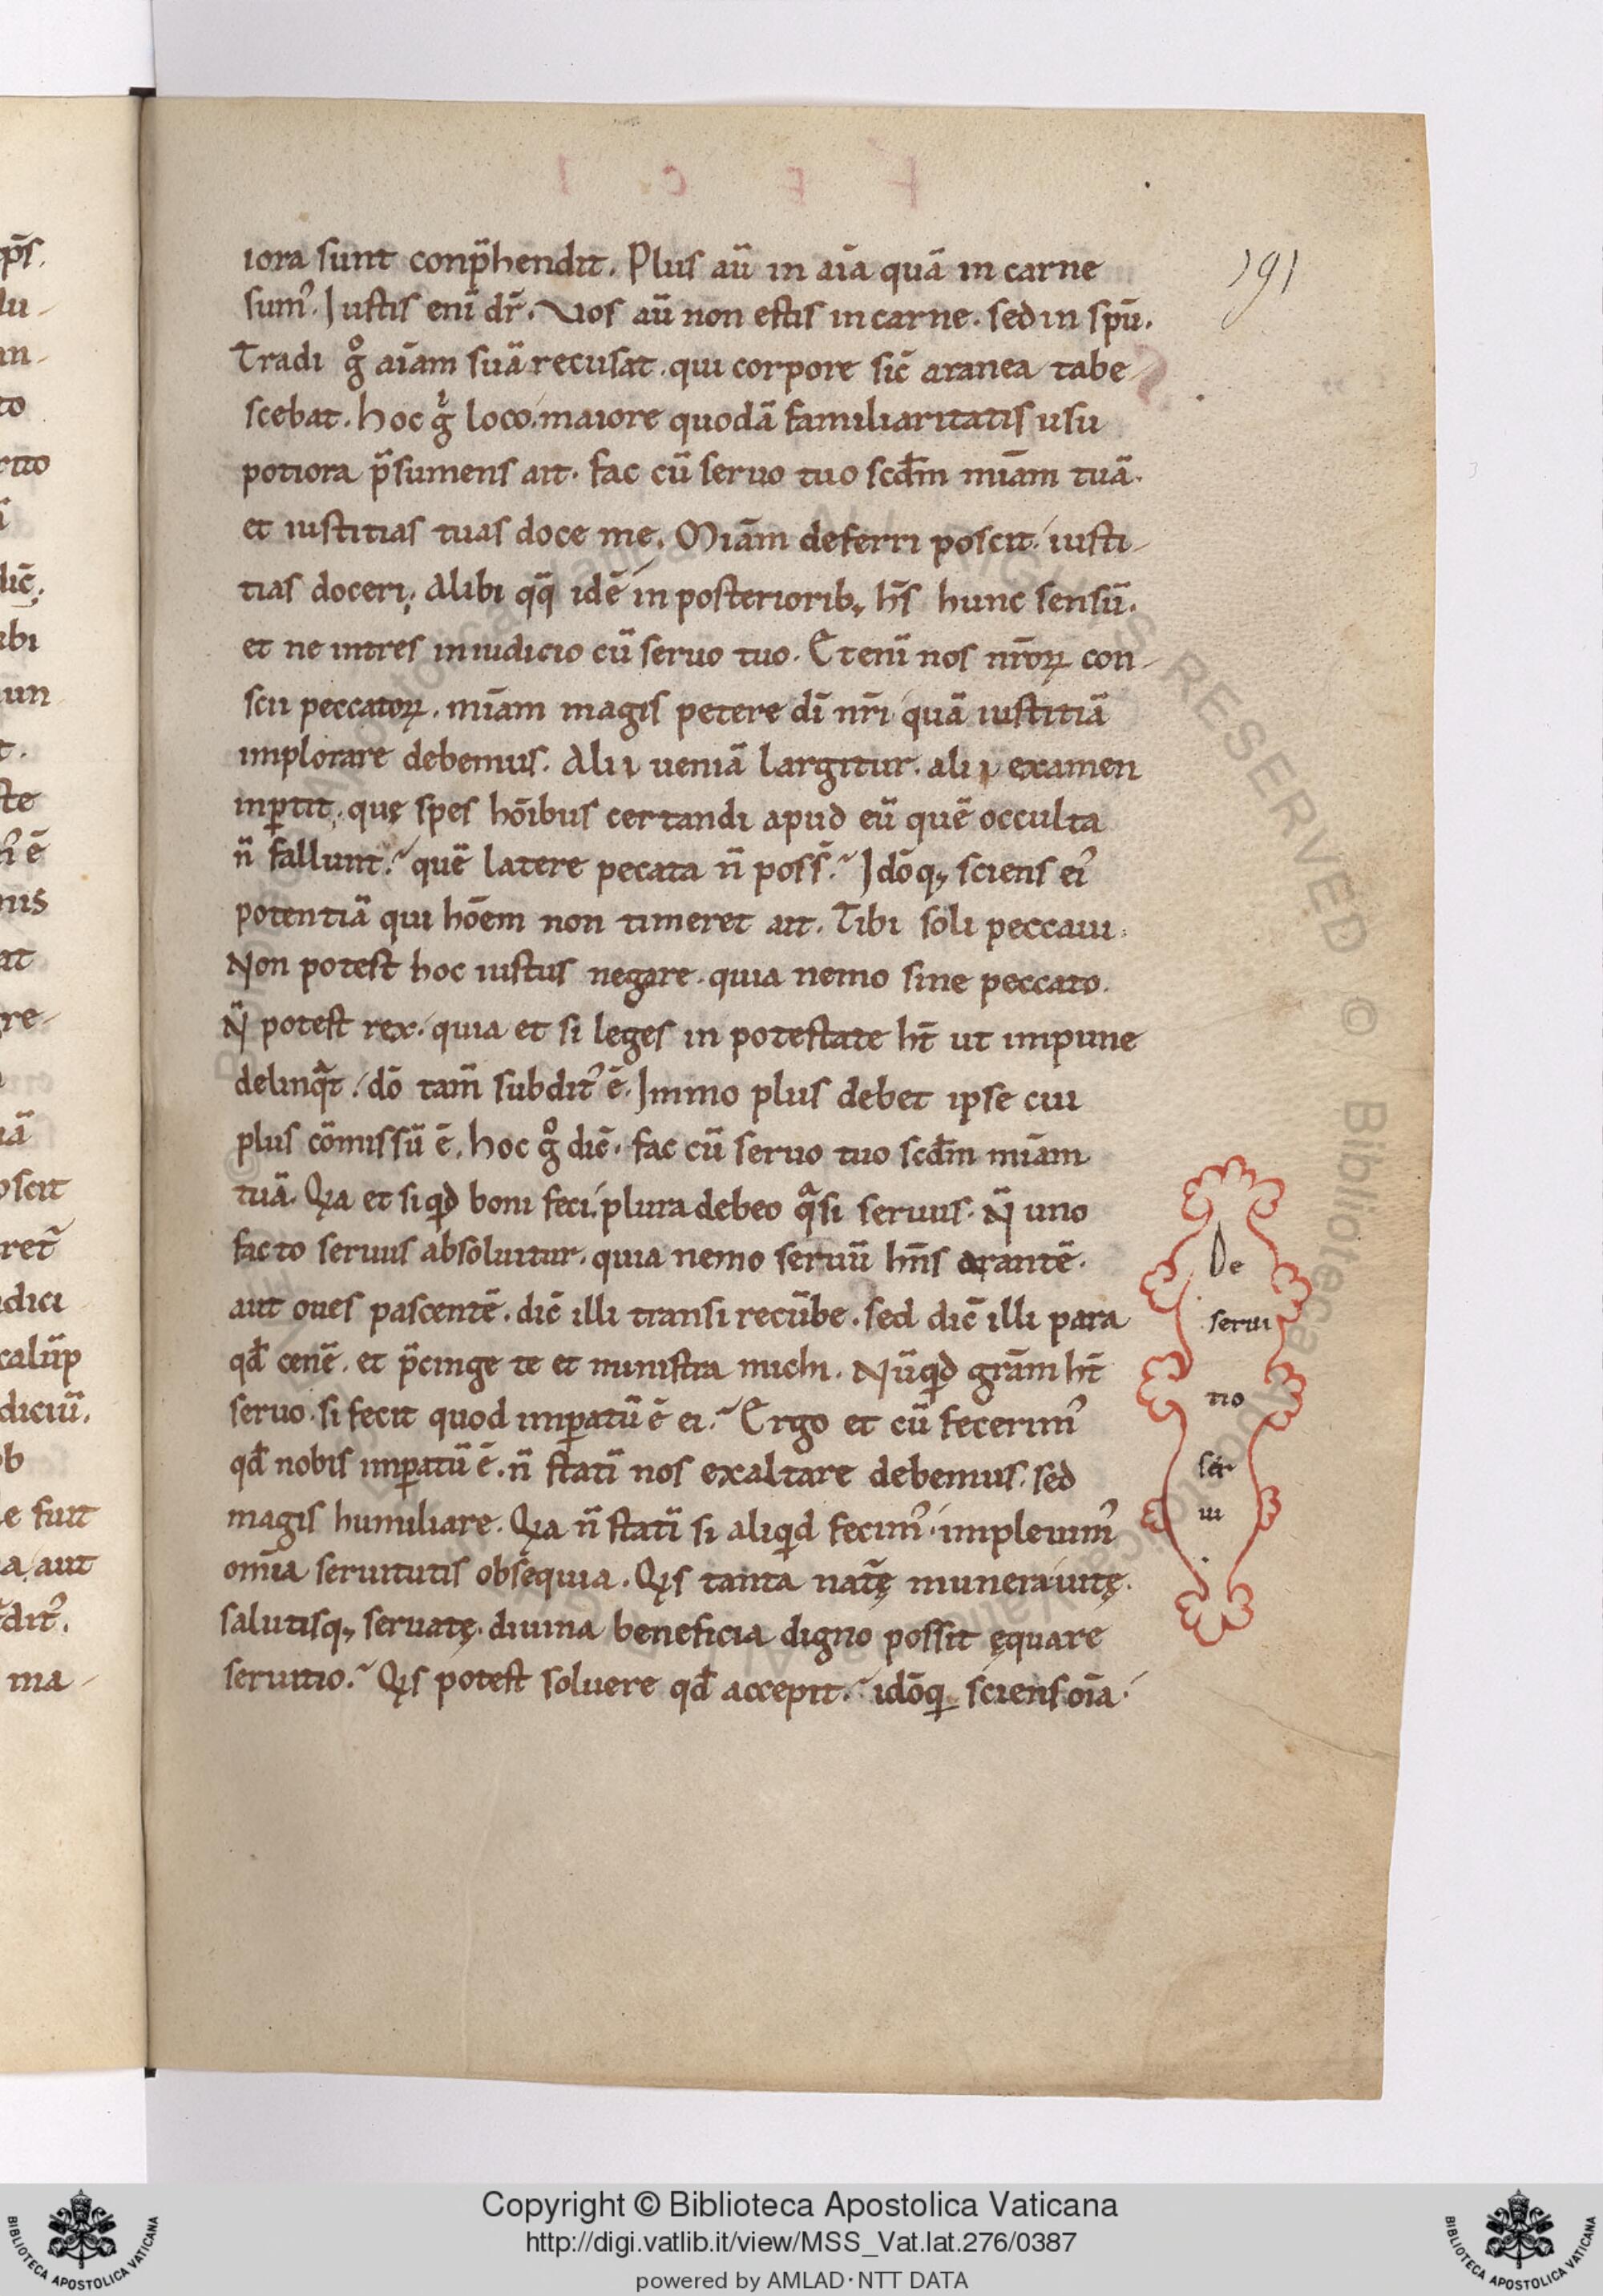 191
iora sunt conp̄hendit. Plus aū in aīa quā in carne
sum᾽. Iustis enī dr̄. Vos aū non estis in carne. sed in spū.
Tradi gͦ aīam suā recusat. qui corpore sic̄ aranea tabe
scebat. hoc gͥ loco. maiore quodā familiaritatis usu
potiora p̄sumens ait. fac cū seruo tuo scd̄m mīam tuā.
et iustitias tuas doce me. Mīam deferri poscit. iusti-
tias doceri. Alibi qq̄ idē in posteriorib; hs̄ hunc sensū.
et ne intres in iudicio cū seruo tuo. Etenī nos nr̄oꝝ con-
scii peccatoꝝ. mīam magis petere dī nr̄i quā iustitiā
implorare debemus. Alii ueniā largitur. alii examen
inꝑtit. quę spes hōibus certandi apud eū quē occulta
n̄ fallunt. quē latere pecata n̄ poss̄. Idōq; sciens ei᾽
potentiā qui hōem non timeret ait. Tibi soli peccaui.
Non potest hoc iustus negare. quia nemo sine peccato.
N̄ potest rex. quia et si leges in potestate ht̄ ut impune
delinqͣt. dō tam̄ subdit᾽ ē. Immo plus debet ipse cui
plus cōmissū ē. hoc gͦ dic̄. fac cū seruo tuo scd̄m mīam
tuā. Qa et si qd boni feci. plura debeo qͣsi seruus. N̄ uno
facto seruus absoluitur. quia nemo seruū hn̄s arantē.
aut oues pascentē. dic̄ illi transi recūbe. sed dic̄ illi para
qd̄ cenē. et p̄cinge te et ministra michi. Nūqd gr̄am ht̄
seruo. si fecit quod imꝑatū ē ei. Ergo et cū fecerim᾽
qd̄ nobis imꝑatū ē. n̄ statī nos exaltare debemus. sed
magis humiliare. Qa n̄ statī si aliqd fecim᾽. impleuim᾽
omīa seruitutis obsequia. Qs tanta nat̄ę munera uitę.
salutisq; seruatę. diuina beneficia digno possit ęquare
seruitio. Qs potest soluere qd̄ accepit. idōq sciens oīa.
De
serui
no
ser
ui
Copyright © Biblioteca Apostolica Vaticana
http://digi.vatlib.it/view/MSS_Vat.lat.276/0387
powered by AMLAD·NTT DATA
BIBLIOTECA APOSTOLICA VATICANA
BIBLIOTECA APOSTOLICA VATICANA